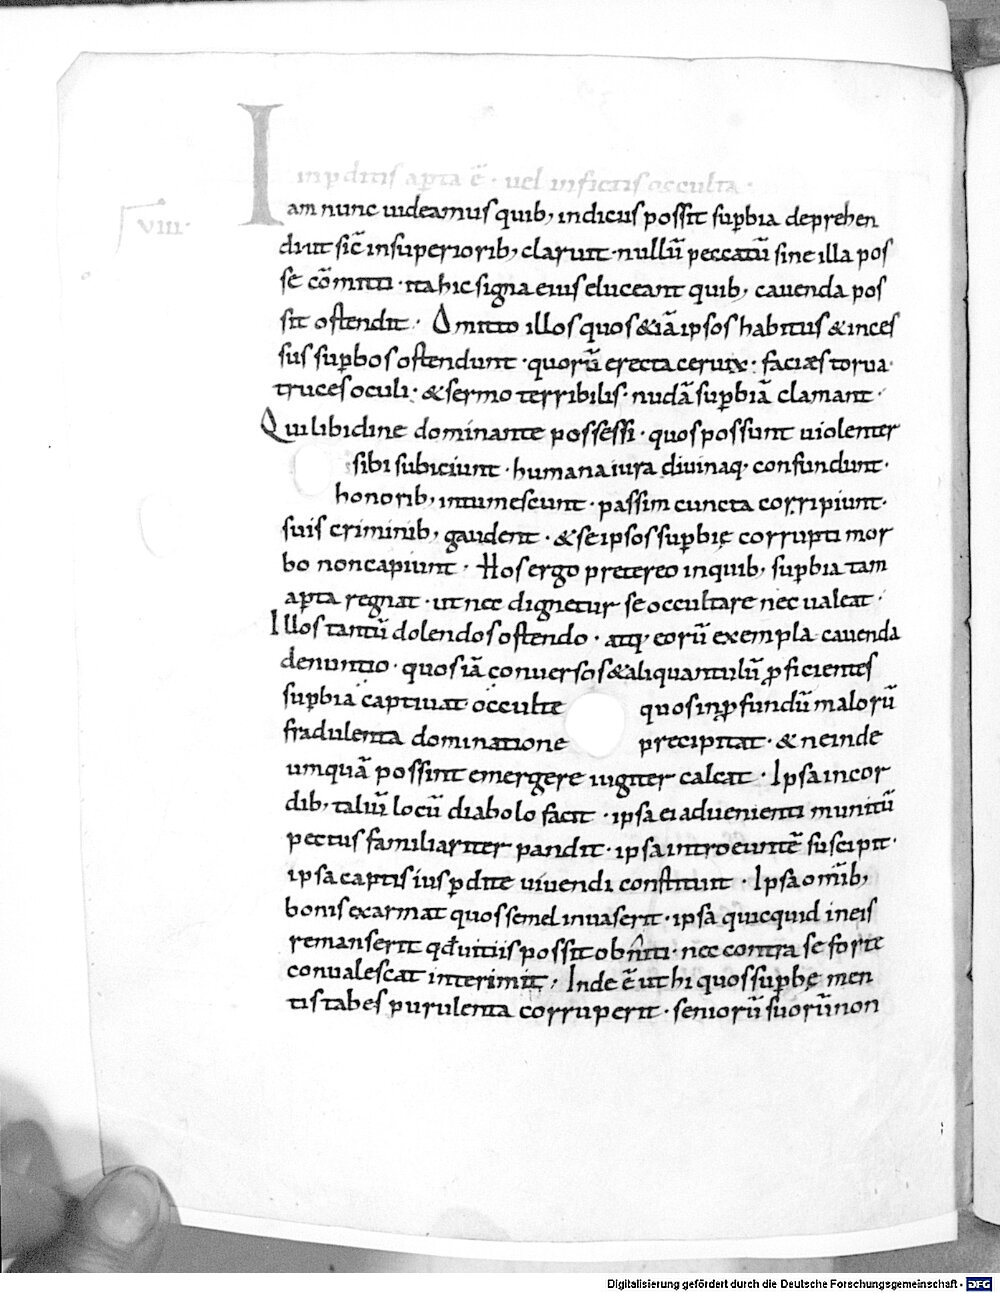 inpditis apta ē · uel infictis occulta ·
VIII ·
Iam nunc uideamus quib; indicus possit supbia deprehen
di ut sic̄ in superiorib; claruit · nullū peccatū sine illa pos
se cōmitti · ita hic signa eius eluceant quib; cauenda pos
sit ostendit · Omitto illos quos &iā ipsos habitus & inces
sus supbos ostendunt · quorū erecta ceruix · facies torua ·
truces oculi · & sermo terribilis · nudā supbiā clamant ·
Qui libidine dominante possessi · quos possunt uiolenter
sibi subiciunt · humana iura diuinaq; confundunt ·
honorib; intumescunt · passim cuncta corripiunt ·
suis criminib; gaudent · & se ipsos supbię corrupti mor
bo non capiunt · Hos ergo pretereo inquib; supbia tam
apta regnat · ut nec dignetur se occultare nec ualeat ·
Illos tantū dolendos ostendo · atq; eorū exempla cauenda
denuntio · quos iā conuersos & aliquantulū pficientes
supbia captiuat occulte quos in pfundū malorū
fradulenta dominatione precipitat · & ne inde
umquā possint emergere iugiter calcat · Ipsa incor
dib; taliū locū diabolo facit · ipsa ei aduenienti munitū
pectus familiariter pandit · ipsa introeuntē suscipit ·
ipsa captis ius pdite uiuendi constituit · Ipsa omīb;
bonis exarmat quos semel inuaserit · ipsa quicquid in eis
remanserit qđ uitiis possit obniti · nec contra se forte
conualescat interimit · Inde ē ut hi quos supbę men
tis tabes purulenta corruperit · seniorū suorū non
Digitalisierung gefördert durch die Deutsche Forschungsgemeinschaft - DFG